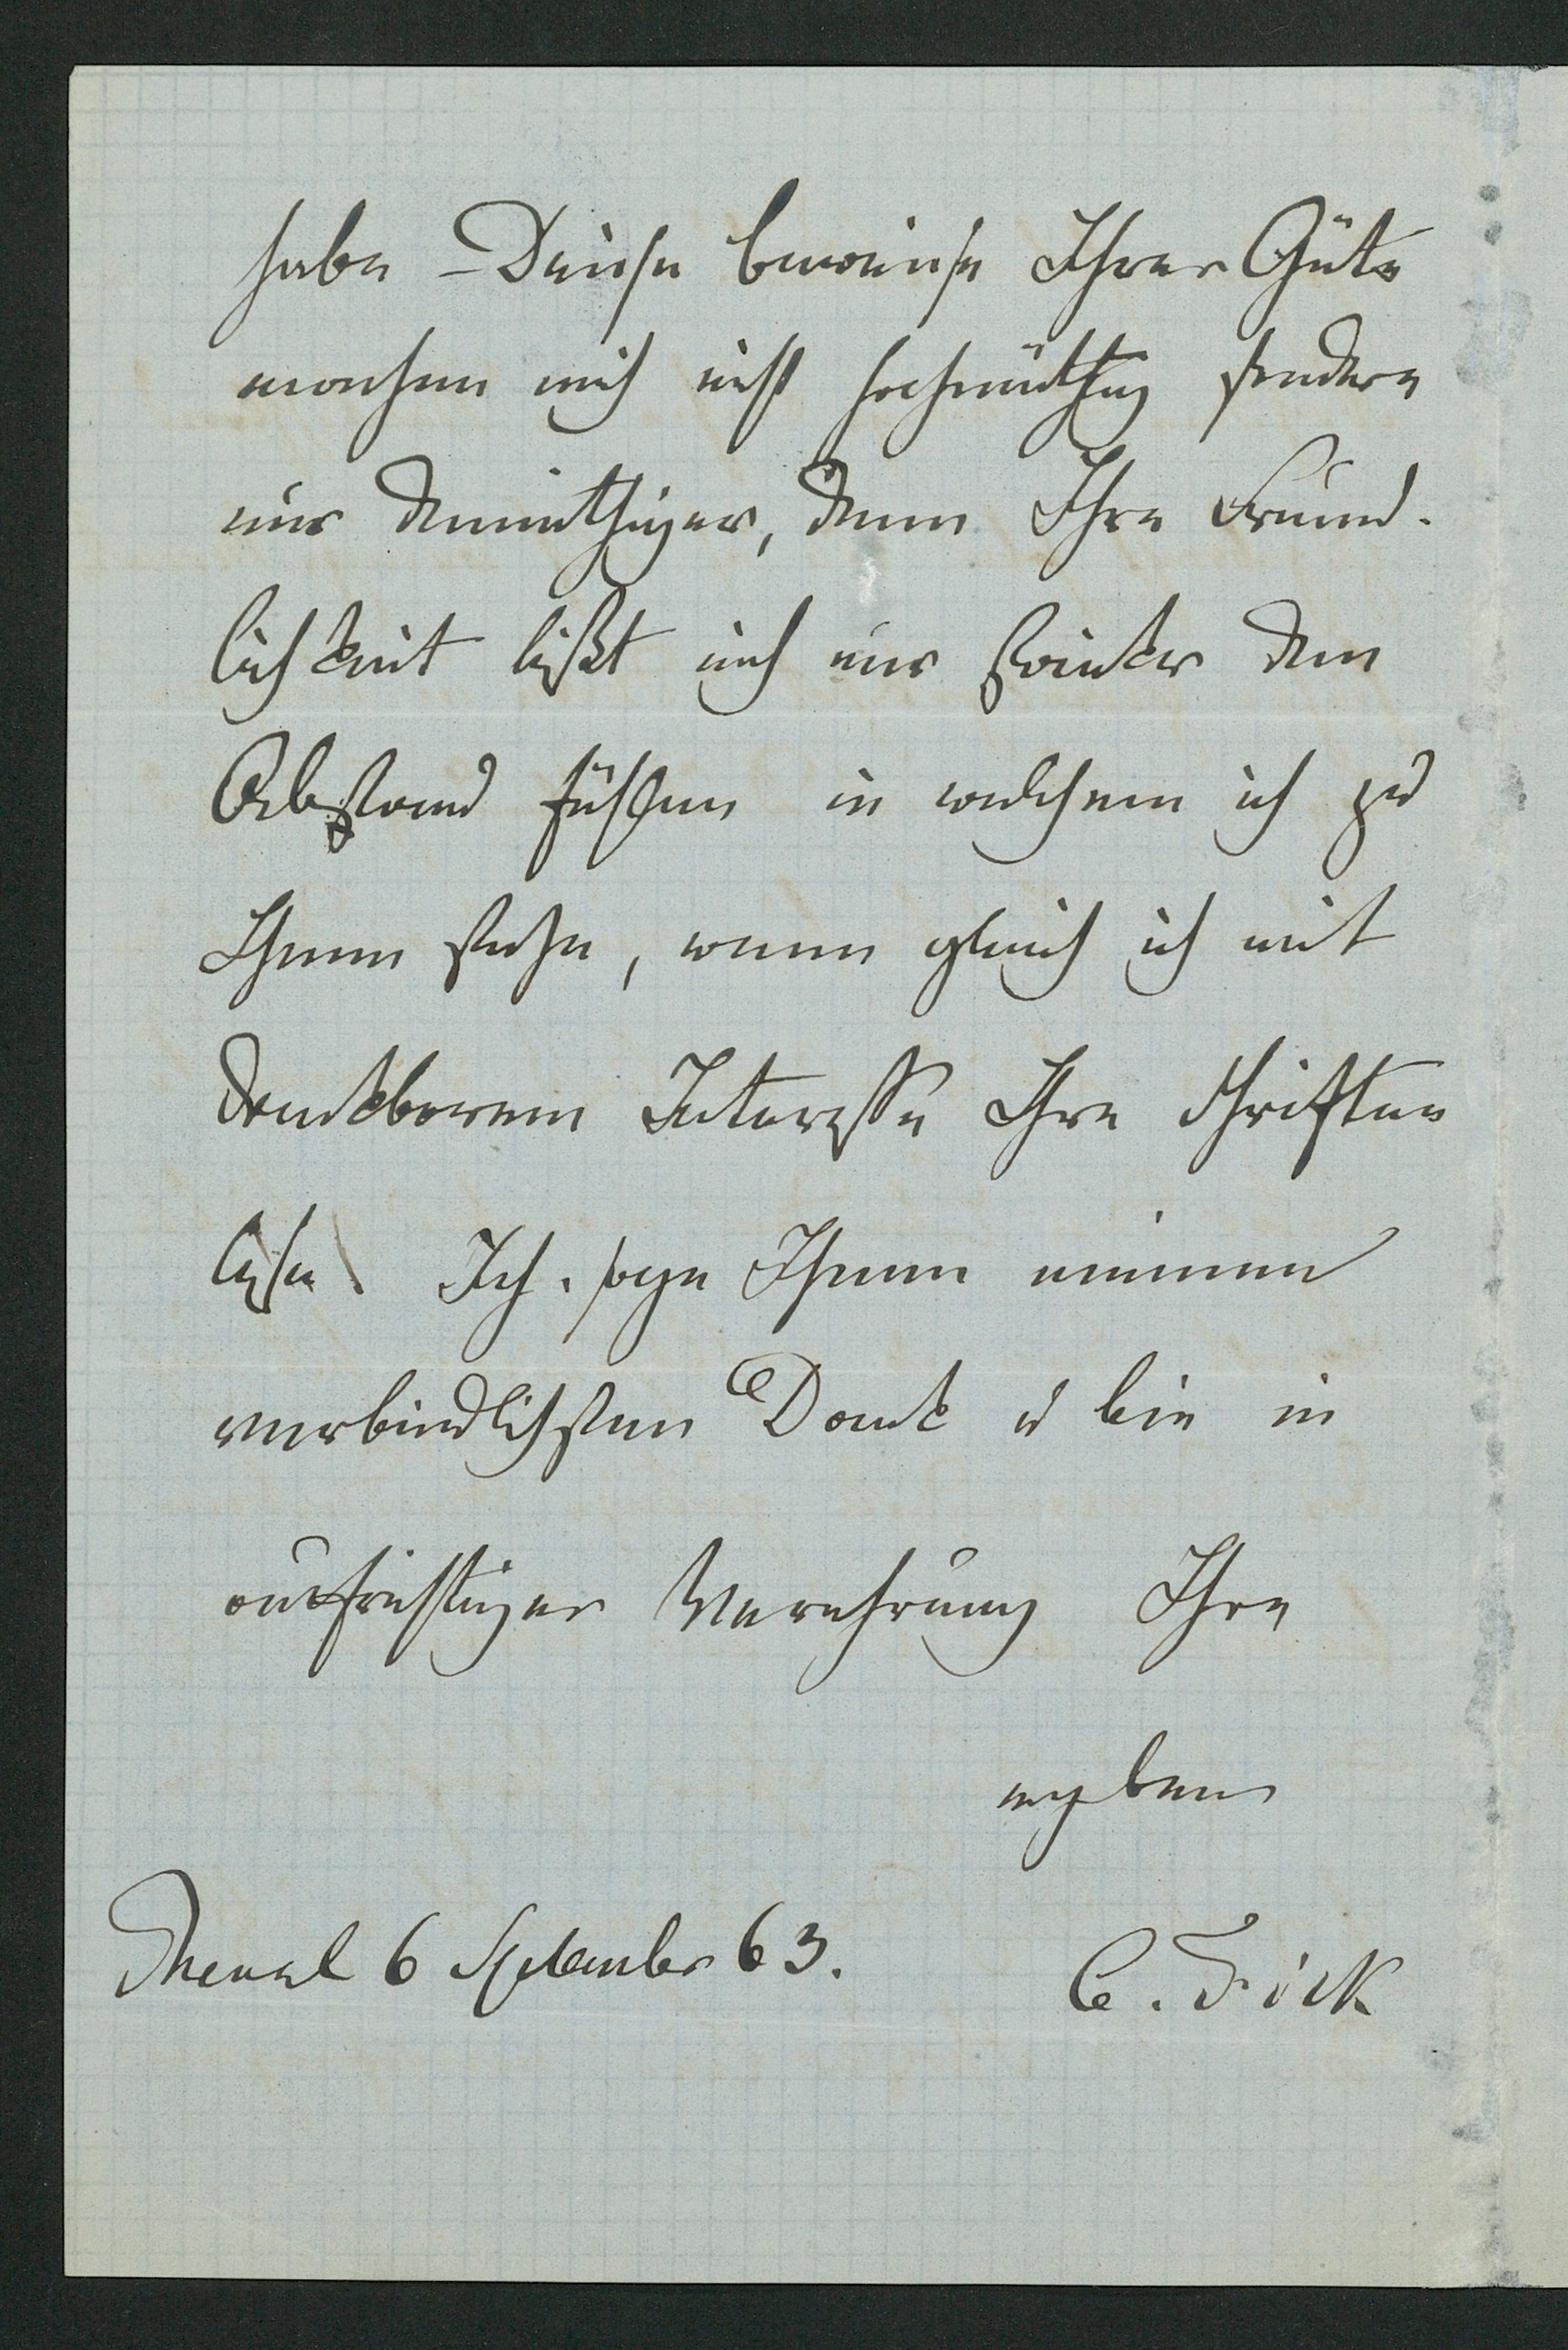 habe – Diese beweise Ihrer Güte
machen mich nicht hochmüthig sondern
nur demüthiger, denn Ihre Freund-
lichkeit läßt mich nur stärker den
Abstand fühlen in welchem ich zu
Ihnen stehe, wenn gleich ich mit
dankbarem Interesse Ihre Schriften
lese. Ich sage Ihnen meinen
verbindlichsten Dank u bin in
aufrichtiger Verehrung Ihr
ergeben
6 September 63.
C. Fick